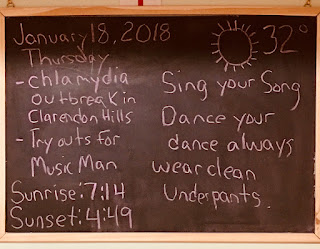 January 18, 2018
Thursday
32°
- Chlamydia
outbreak in
Clarendon Hills
- Try outs for
Music Man
Sunrise: 7:14
Sunset: 4:49
Sing your Song
Dance your
dance always
wear clean
Underpants.